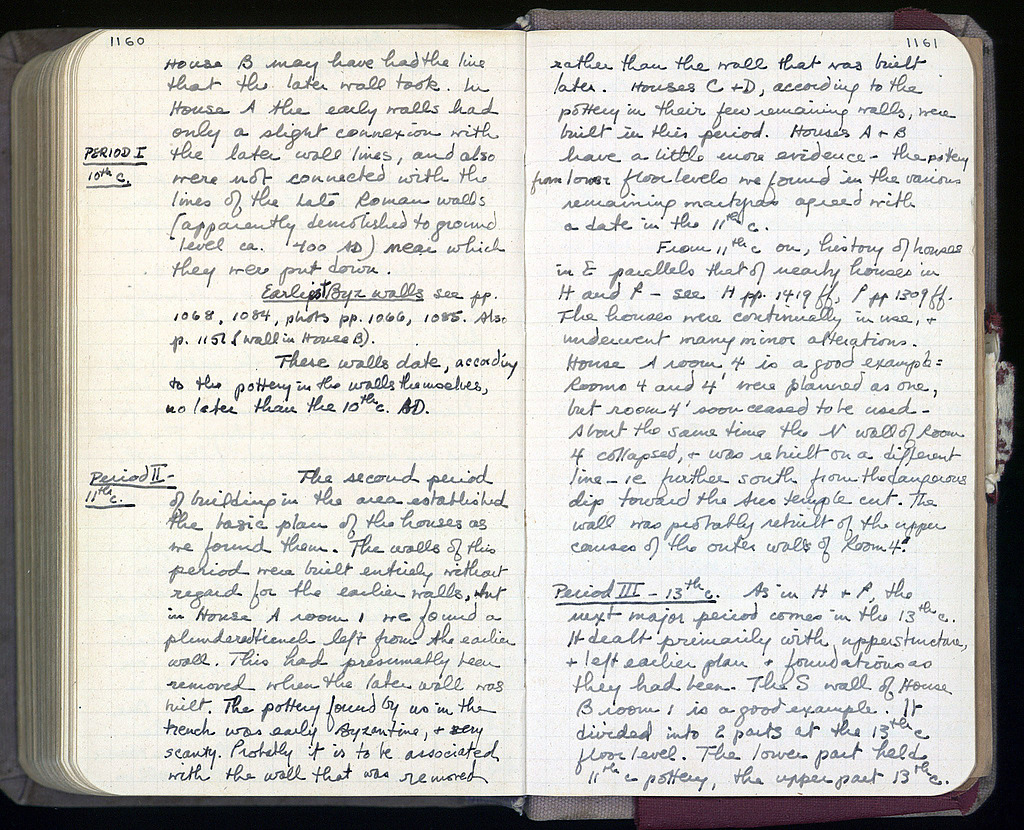 1160
House B may have had the line
that the later wall took. In
House A the early walls had
only a slight connexion with
PERIOD I the later wall lines, and also
10th c. were not connected with the
lines of the Late Roman walls
(apparently demolished to ground
level ca. 400 AD) near which
they were put down.
Earliest Byz walls see pp.
1068, 1084, photos pp. 1066, 1085. Also
p. 1151 f (wall in House B).
These walls date, according
to the pottery in the walls themselves,
no later than the 10th c. AD.
Period II - The second period
11th c. of building in the area established
the basic plan of the houses as
we found them. The walls of this
period were built entirely without
regard for the earlier walls, but
in House A room 1 we found a
plundered trench left from the earlier
wall. This had presumably been
removed when the later wall was
built. The pottery found by us in the
trench was early Byzantine, + very
scanty. Probably it is to be associated
with the wall that was removed
1161
rather than the wall that was built
later. Houses C + D, according to the
pottery in their few remaining walls, were
built in this period. Houses A + B
have a little more evidence - the pottery
from lower floor levels we found in the various
remaining martyras agreed with
a date in the 11th c.
From 11th c on, history of houses
in E parallels that of nearby houses in
H and P - see H pp. 1419 ff, P pp 1309 ff.
The houses were continually in use, +
underwent many minor alterations.
House A room 4 is a good example:
Rooms 4 and 4' were planned as one,
but room 4' soon ceased to be used -
About the same time the N wall of Room
4 collapsed, + was rebuilt on a different
line - ie further south from the dangerous
dip toward the Ares temple cut. The
wall was probably rebuilt of the upper
courses of the outer walls of Room 4'.
Period III - 13th c. As in H + P, the
next major period comes in the 13th c.
It dealt primarily with upperstructure,
+ left earlier plan + foundations as
they had been. The S wall of House
B room 1 is a good example. It
divided into 2 parts at the 13th c
floor level. The lower part held
11th c pottery, the upper part 13th c.